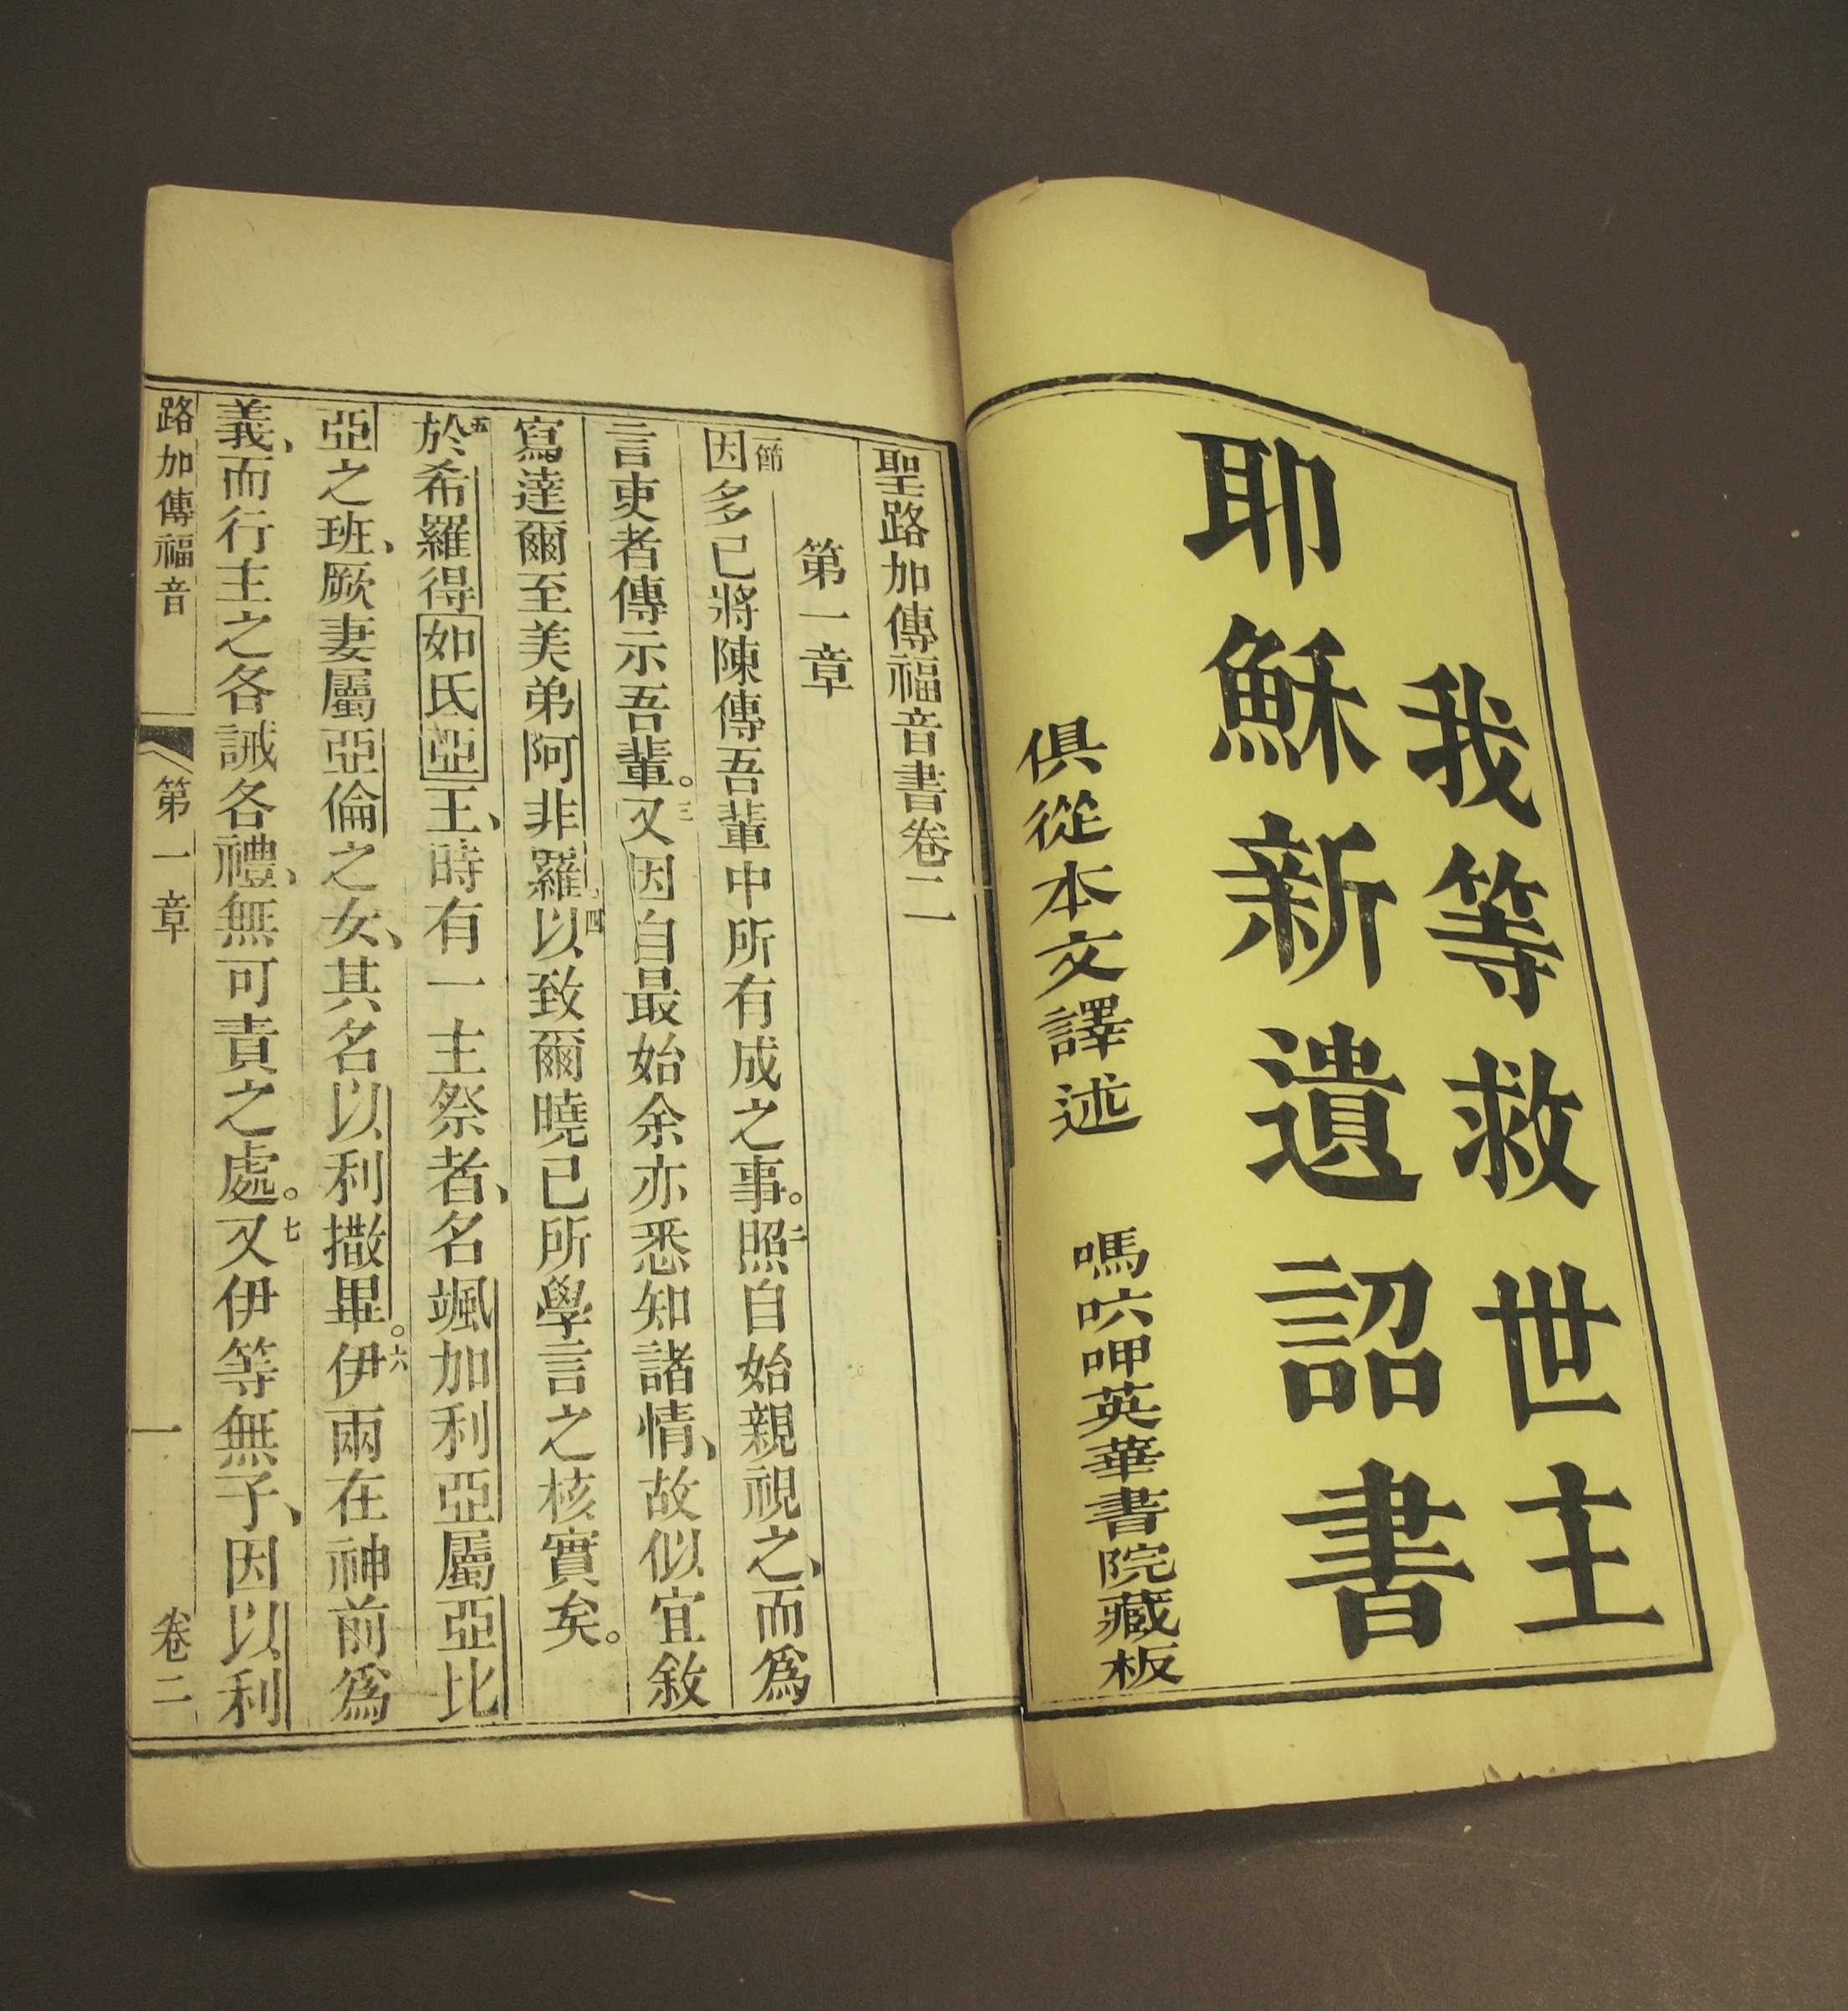 我等救世主
耶穌新遺詔書
俱從本文譯述
嗎㕥呷英華書院藏板
聖路加傳福音書卷二
第一章
節因多已將陳傳吾輩中所有成之事。二照自始親視之、而爲
言吏者傳示吾輩。三又因自最始余亦悉知諸情、故似宜敘
寫達爾至美弟阿非羅。四以致爾曉已所學言之核實矣。
五於希羅得如氏亞王、時有一主祭者、名颯加利亞屬亞比
亞之班、厥妻屬亞倫之女、其名以利撒畢。六伊兩在神前爲
義、而行主之各誡各禮、無可責之處。七又伊等無子、因以利
路加傳福音 第一章 一 卷二